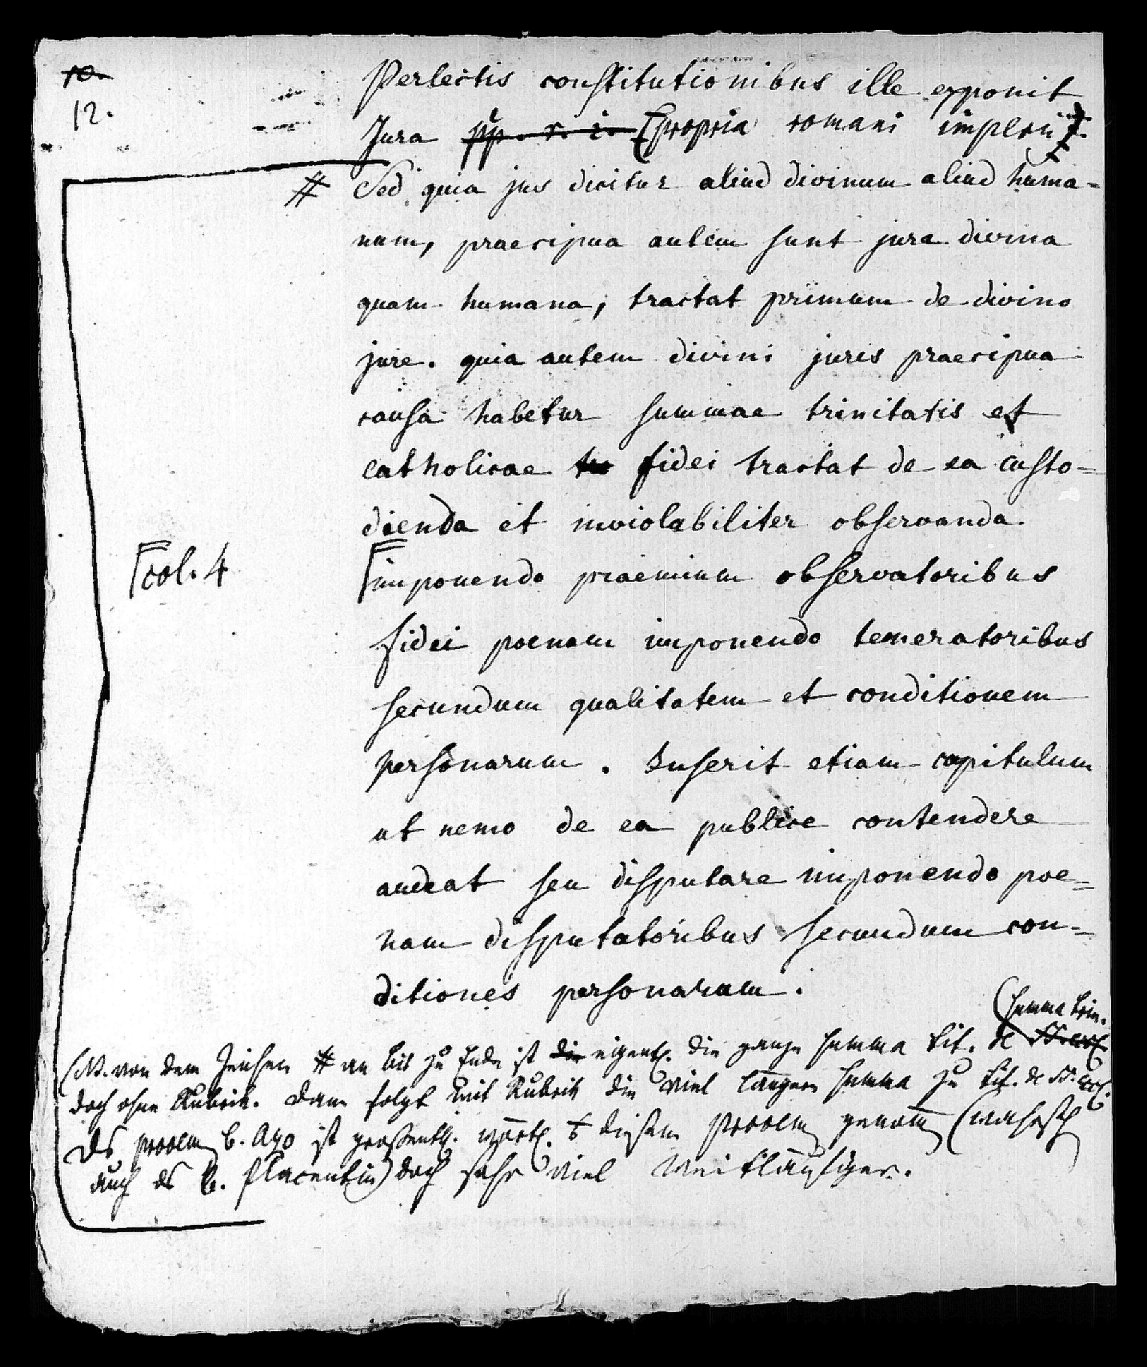 10.
12.
Perlectis constitutionibus ille exponit
Jura pp. r. i. propria romani imperii
# Sed quia jus dicitur aliud divinum aliud huma=
num, praecipua autem sunt jura divina
quam humana, tractat primum de divino
jure. quia autem divini juris praecipua
causa habetur summae trinitatis et
catholicae fidei tractat de ea custo=
dienda et inviolabiliter observanda.
col. 4
imponendo praemium observatoribus
fidei poenam imponendo temeratoribus
secundum qualitatem et conditionem
personarum. Inserit etiam capitulum
ut nemo de ea publice contendere
audeat seu disputare imponendo poe=
nam disputatoribus secundum con=
ditiones personarum.
Summa trin.
(NB. von dem Zeichen # an bis zu Ende ist die eigentl. die ganze Summa tit. de
doch ohne Rubrik. Dann folgt mit Rubrik die viel längere Summa zu tit. de SS. eccl.
Ds prooem b. Azo ist großenth. wörtl. diesem Prooem genom̄ (wahrsch
auch ds b. Placentin) doch sehr viel weitläufiger.